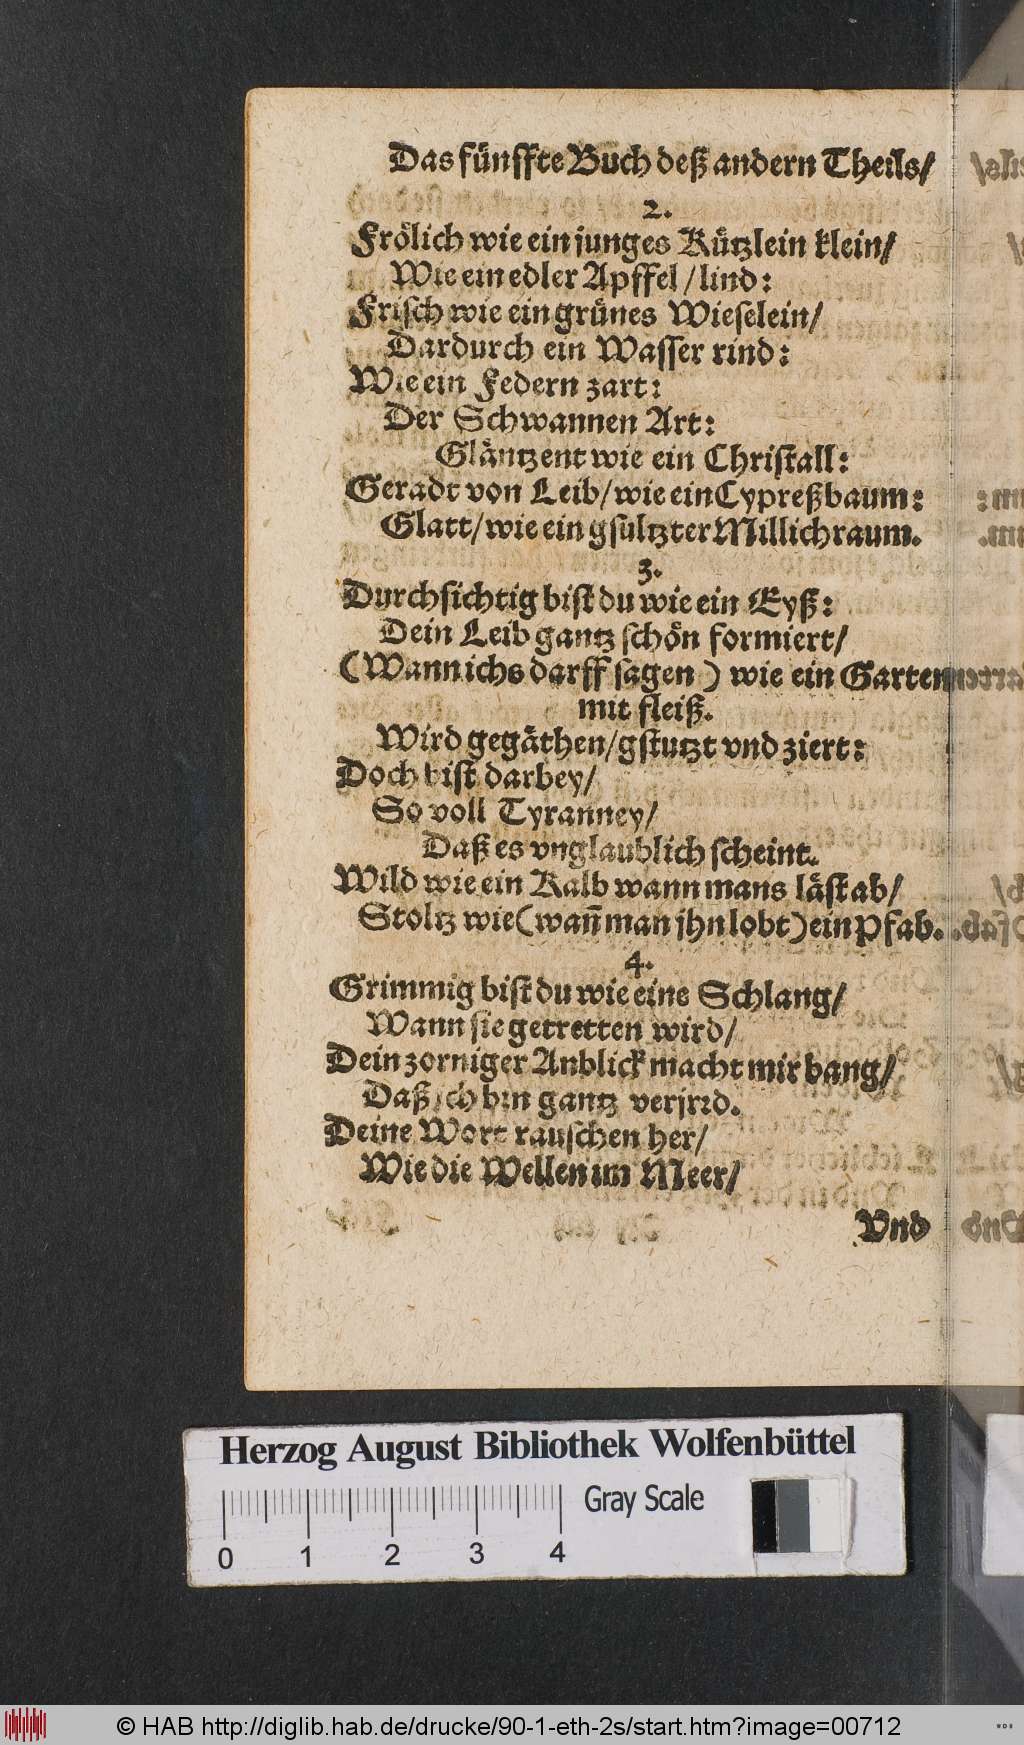 Das fünffte Buch deß andern Theils/
2.
Frölich wie ein junges Kützlein klein/
Wie ein edler Apffel / lind:
Frisch wie ein grünes Wieselein/
Dardurch ein Wasser rind:
Wie ein Federn zart:
Der Schwannen Art:
Gläntzent wie ein Christall:
Geradt von Leib/ wie ein Cypreßbaum:
Glatt/ wie ein gsultzter Millichraum.
3.
Durchsichtig bist du wie ein Eyß:
Dein Leib gantz schön formiert/
(Wann ichs darff sagen) wie ein Garten
mit fleiß.
Wird gegäthen/ gstutzt vnd ziert:
Doch bist darbey/
So voll Tyranney/
Daß es vnglaublich scheint.
Wild wie ein Kalb wann mans läst ab/
Stoltz wie (wañ man jhn lobt) ein Pfab.
4.
Grimmig bist du wie eine Schlang/
Wann sie getretten wird/
Dein zorniger Anblick macht mir bang/
Daß ich bin gantz verjrrd.
Deine Wort rauschen her/
Wie die Wellen im Meer/
Vnd
Herzog August Bibliothek Wolfenbüttel
0 1 2 3 4
Gray Scale
© HAB http://diglib.hab.de/drucke/90-1-eth-2s/start.htm?image=00712